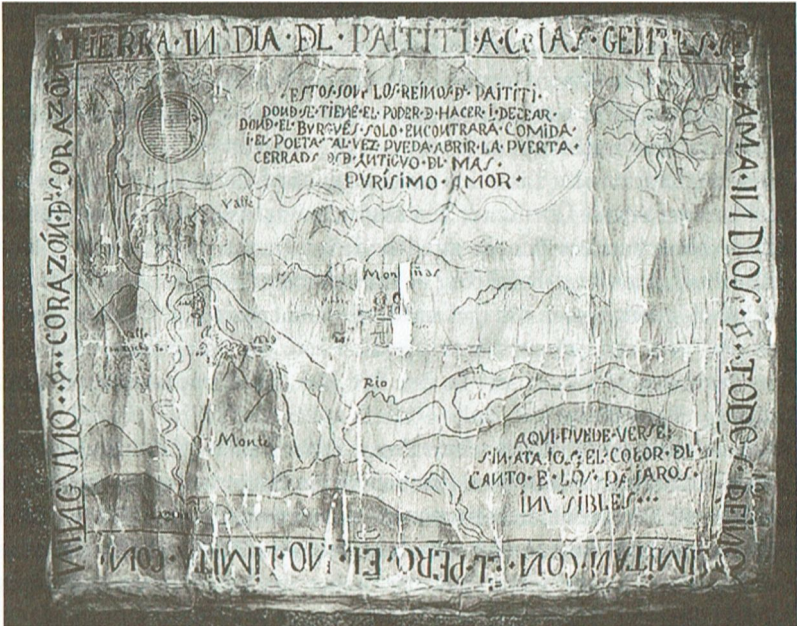 TIERRA·IN DIA·DL·PAITITI·A·CUIAS·GENTES·SE
LLAMA·IN DIOS·
LIMITAN·CON·EL·PERO·EL·NO·LIMITA·CON·
NINGUNO···CORAZÓN·DL·CORAZÓN
ESTOS·SON·LOS·REINOS·D·PAITITI·
DOND·SE·TIENE·EL·PODER·D·HACER·I·DESEAR·
DOND·EL·BURGUÉS·SOLO·ENCONTRARÁ·COMIDA·
I·EL·POETA·TAL·VEZ·PUEDA·ABRIR·LA·PUERTA·
CERRADA·DSD·ANTIGUO·DL·MAS·
PURÍSIMO·AMOR·
Valle
Montañas
Valle
Río
Monte
AQUI·PUEDE·VERSE·
SIN·ATAJOS·EL·COLOR·DL·
CANTO·D·LOS·PÁJAROS·
INVISIBLES···